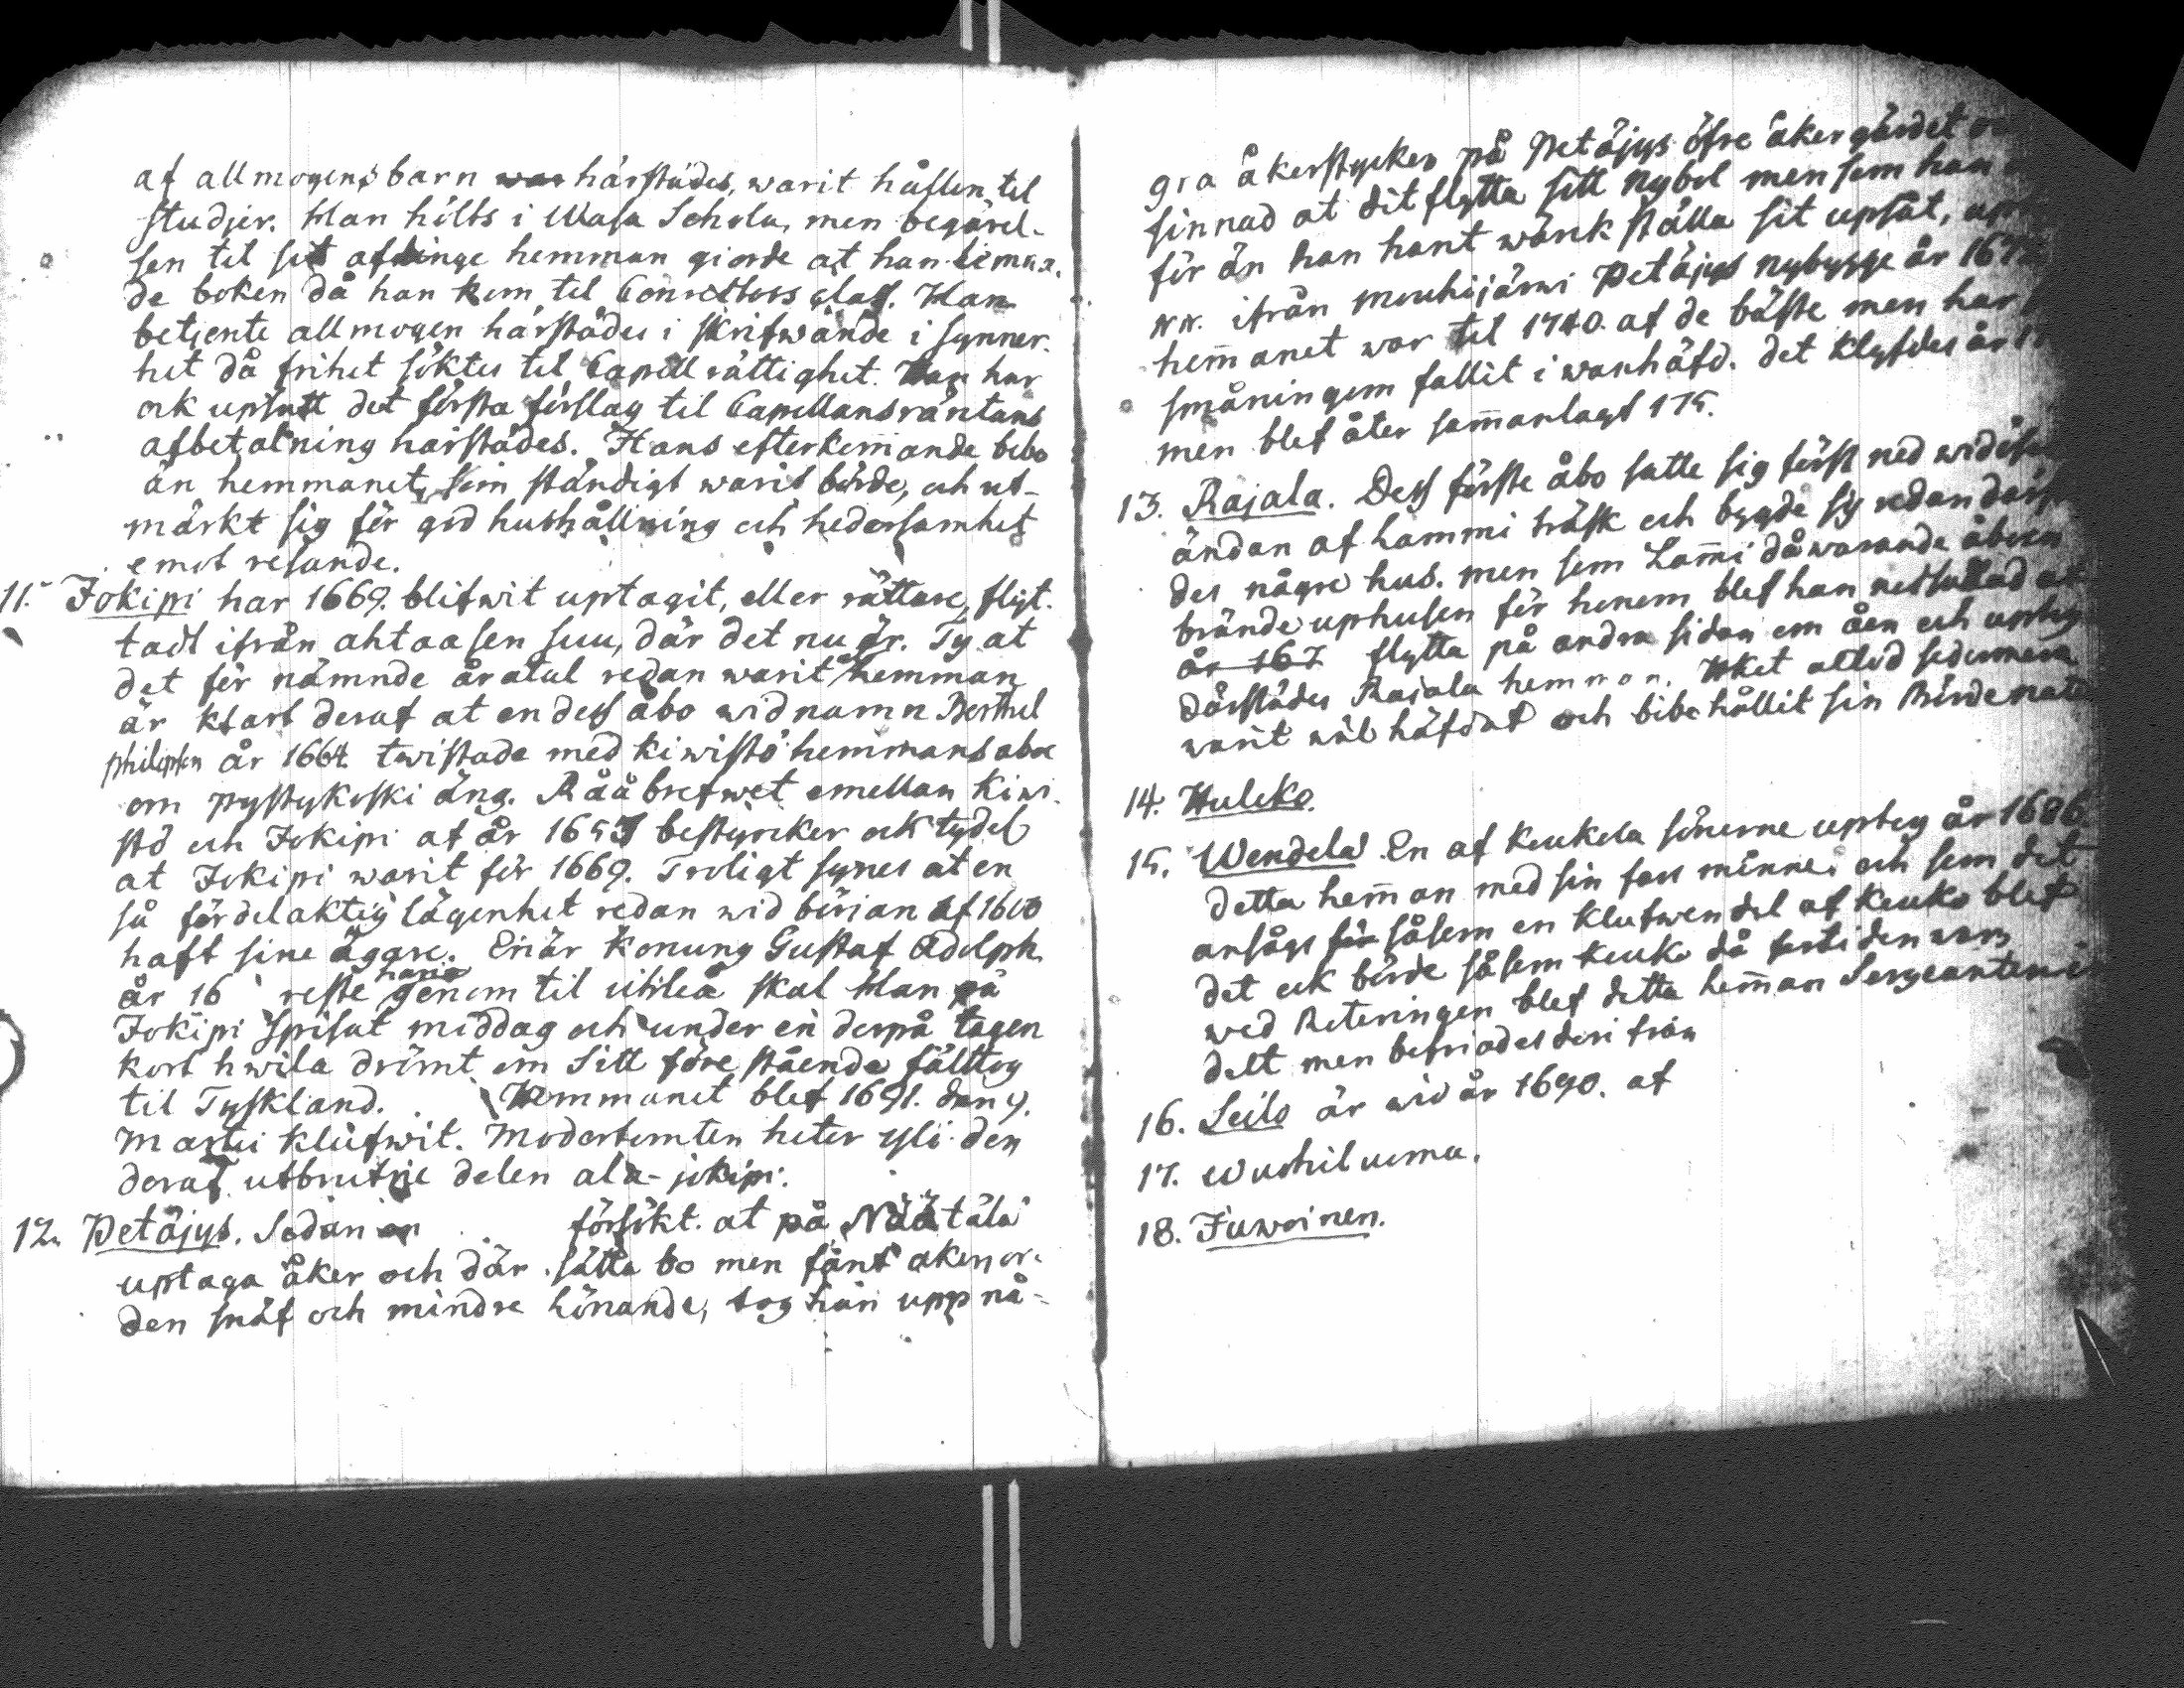 af allmogens barn war härstädes, warit hållen til
studjer. Han hölts i Wasa Schola, men begärel-
sen til sit aflinge hemman giorde at han lemna-
de boken då han kom til Conrectors class. Han
betjente allmogen härstädes i skrifwände i synner-
het då frihet söktes til Capell rättighet. Han har
ock upsatt det första förslag til Capellansräntans
afbetalning härstädes. Hans efterkom̄ande bebo
än hemmanet, som ständigt warit börde, och ut-
märkt sig för god hushållning och hedersamhet
emot resande.
11. Jokipi har 1669. blifwit uptagit, eller rättare, flyt-
tadt ifrån ahtaasen suu, där det nu är. Ty at
det för nämnde åratal redan warit hemman
är klart deraf at en dess åbo wid namn Berthel
philipsen år 1664 twistade med kiwistö hemmans aboe
om pystykoski äng. Råå brefwet emellan Kiwi-
stö och Jokipi af år 1653 bestyrcker ock tydel
at Jokipi warit för 1669. Troligt synes at en
så fördelaktig lägenhet redan wid början af 1600
haft sine ägare. Enär Konung Gustaf Adolph
år 16 reste genom til uhleå skal Han på
Jokipi spisat middag och under en derpå tagen
kort hwila drömt om Sitt före stående fälttog
til Tyskland. Hemmanet blef 1691. den 9.
Martii klufwit. Moderhemten heter yli den
deraf utbrutne delen ala-jokipi.
12. Petäjys. Sedan an försökt at på Näätälä
uptaga åker och där sätta bo men fant åkerjor-
den snäf och mindre lönande, tog han upp nå-
gra åkerstycken på Petäjys öfre åkergärdet
sinnad at dit flytta sitt Nybol men som han
för än han hant wärkställa sit upsåt, up
NN. ifrån mouhijärwi Petäjys nybygge år 167
hem̄anet war til 1740. af de bäste men har
småningom fallit i wanhäfd. det klyfdes år 17
men blef åter sam̄anlagt 175.
13. Rajala. Dess förste åbo satte sig först ned wid
ändan af Lammi träsk och bygde sig redan där
des någre hus. men som Lam̄i då warande åboen
brände up husen för honom blef han
år 167 flytta på andra sidan om åen och uptog
därstädes Rajala hemman. Hket altid sedermera
warit wäl häfdat och bibehållit sin Börde natur
14. Huleko.
15. Wendela. En af keukela sönerne uptog år 1686.
detta hem̄an med sin fars minne och som det
ansågs för såsom en klufwen del af Keuko blef
det ock börde såsom keuko då för tiden war,
wed Roteringen blef detta hem̄an Sergeanten
delt men befriades deri från
16. Leilo är wid år 1690. af
17. Wuohiluoma.
18. Juwoinen.